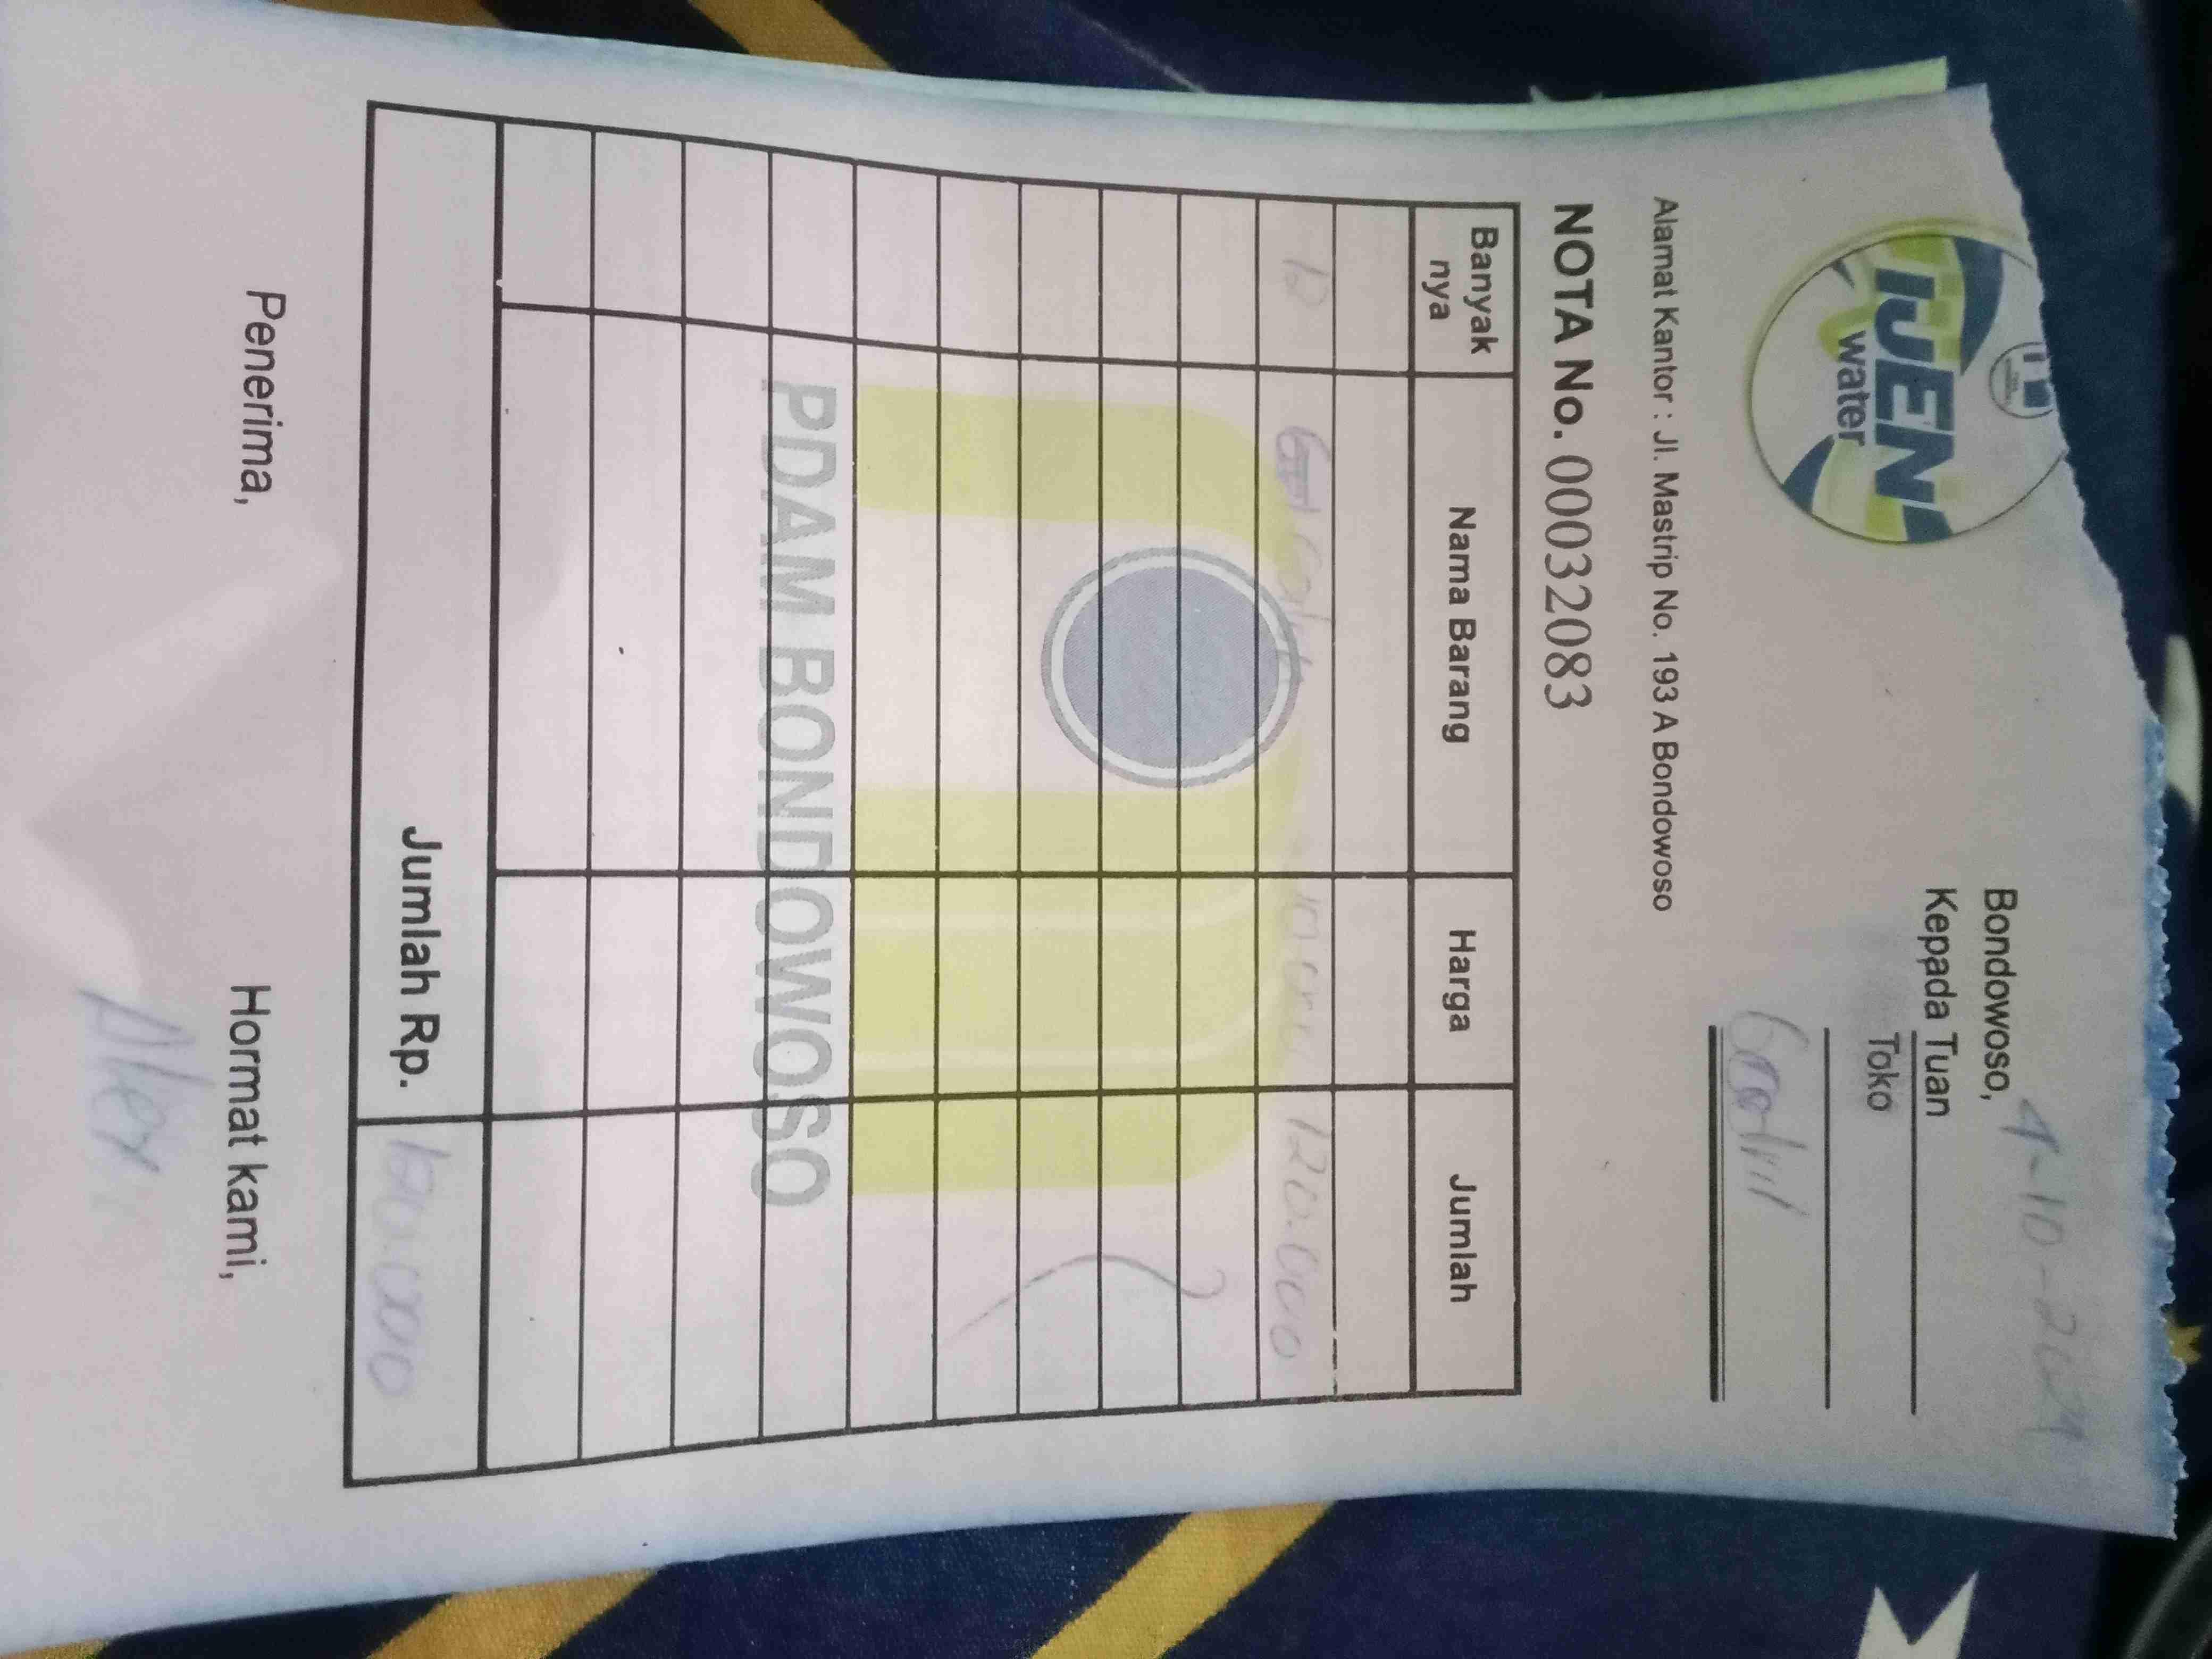 IJEN
water
Bondowoso, 4-10-2024
Kepada Tuan
Toko
Alamat Kantor : Jl. Mastrip No. 193 A Bondowoso
NOTA No. 00032083
Banyak nya Nama Barang Harga Jumlah
12 10.000 120.000
PDAM BONDOWOSO
Jumlah Rp. 120.000
Penerima, Hormat kami,
Alex